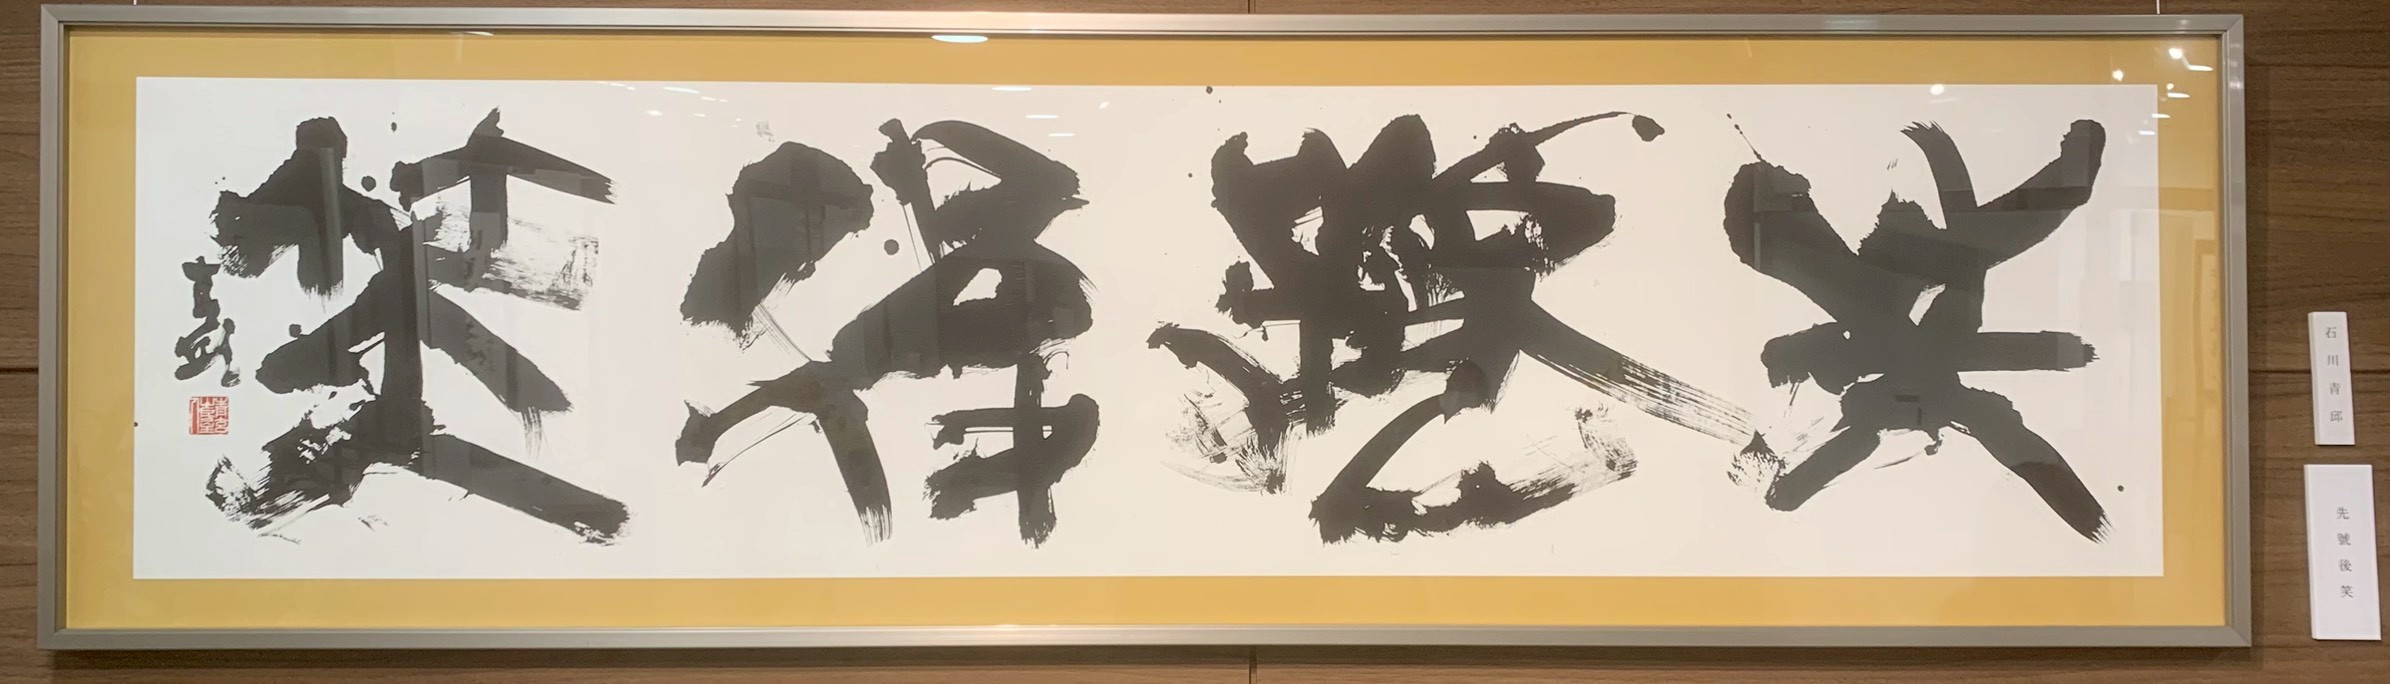 先號後笑
青邱
石川青邱
先號後笑